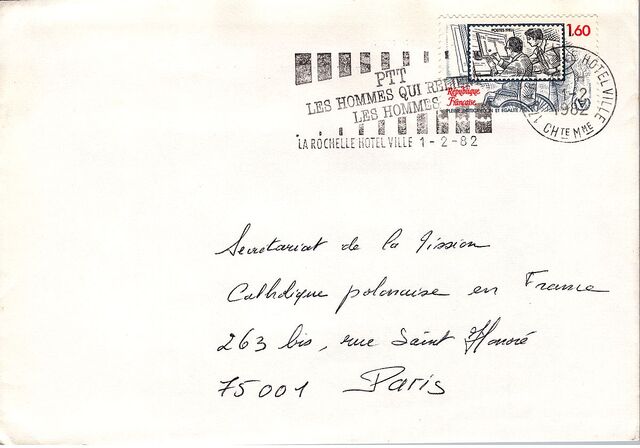 POSTES 1982
1.60
République
Française
PLEINE PARTICIPATION ET EGALITE
PTT
LES HOMMES QUI RELIENT
LES HOMMES
LA ROCHELLE HOTEL VILLE 1-2-82
HOTEL VILLE
1-2
1982
17 CHTE MME
Secretariat de la Mission
Catholique polonaise en France
263 bis, rue Saint Honoré
75001 Paris